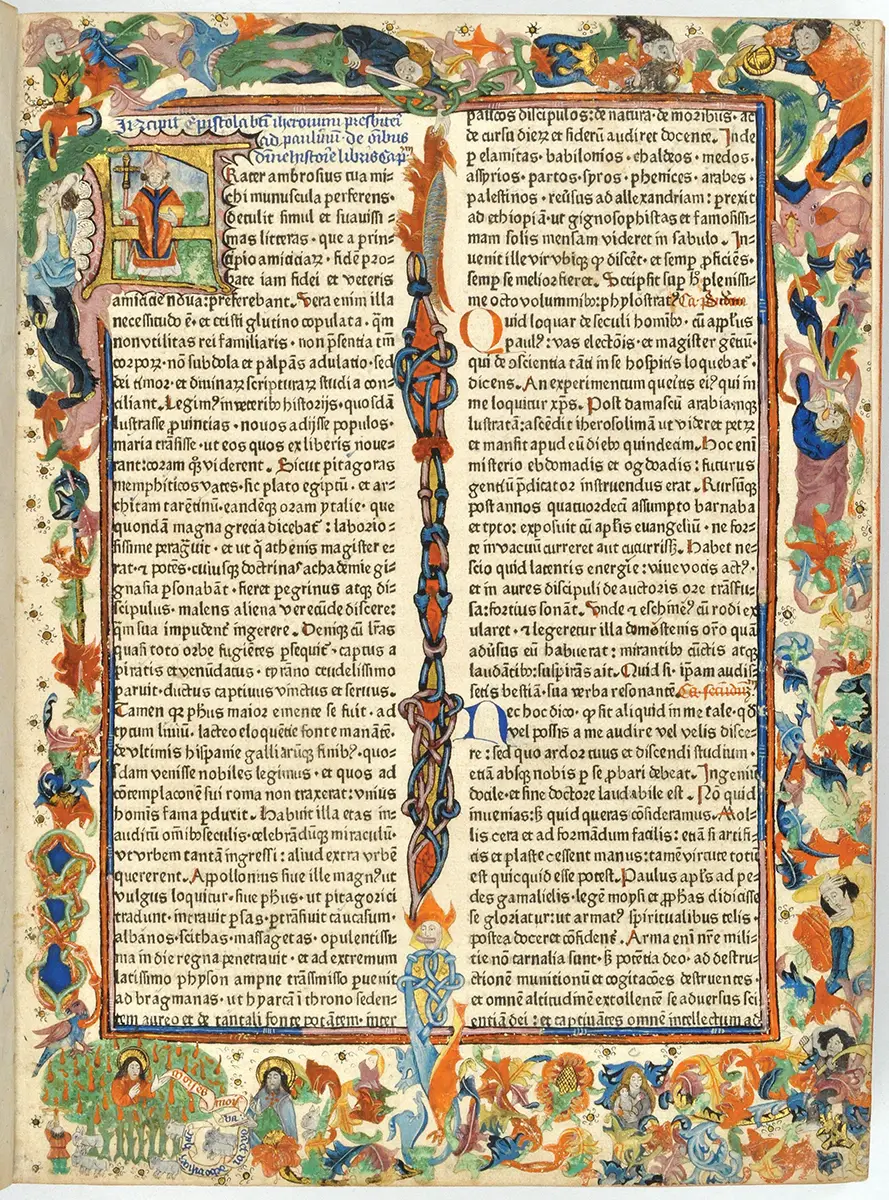 Incipit Epistola bti iheronimi presbiteri
ad paulinum de omibus
diuine historie libris Cap^m
FRater ambrosius tua mi-
chi munuscula perferens·
detulit simul et suauissi-
mas litteras· que a prin-
cipio amiciciarū· fidē pro-
bate iam fidei et veteris
amiticie noua: preferebant. Vera enim illa
necessitudo ē· et cristi glutino copulata· qm̄
non vtilitas rei familiaris· non p̄sentia tm̄
corporꝝ· nō subdola et palpās adulatio· sed
dei timor· et diuinarꝝ scripturarꝝ studia con-
ciliant. Legimꝰ in veteribꝫ historijs· quosdā
lustrasse ꝓuintias· nouos adijsse populos·
maria trāsisse· ut eos quos ex libris noue-
rant: coram qꝫ viderent. Sicut pitagoras
memphiticos vates· sic plato egiptū· et ar-
chitam tarentinū· eandēqꝫ oram ytalie· que
quondā magna grecia dicebat᷑: laborio-
sissime peragrauit· et ut qͥ athenis magister e-
rat· ⁊ potēs· cuiusqꝫ doctrinas achademie gi-
gnasia ꝑsonabāt· fieret peregrinus atqꝫ di-
scipulus· malens aliena verecūde discere:
qm̄ sua impudent᷑ ingerere. Deniqꝫ cū lr̄as
quasi toto orbe fugiētes ꝑsequit᷑· captus a
piratis et venūdatus· tyrāno crudelissimo
paruit· ductus captiuus vinctus et seruus.
Tamen qꝛ ph̄us maior emente se fuit· ad
tytum liuiū· lacteo eloquētie fonte manātē·
de vltimis hispanie galliarūqꝫ finibꝫ· quo-
sdam venisse nobiles legimus· et quos ad
cōtemplaconē sui roma non traxerat: vnius
homīs fama ꝑduxit. Habuit illa etas in-
auditū om̄ibꝫ seculis· celebrādūqꝫ miraculū·
vt vrbem tantā ingressi: aliud extra vrbē
quererent. Appollonius siue ille magꝰ ut
vulgus loquitur· siue ph̄us· ut pitagorici
tradunt· intrauit ꝑsas· ꝑtrāsiuit caucasum·
albanos· scithas· massagetas· opulentissi-
ma indie regna penetrauit· et ad extremum
latissimo physon ampne trāsmisso ꝑuenit
ad bragmanas· ut hyarcā ī throno seden-
tem aureo et de tantali fonte potātem· inter
paucos discipulos: de natura· de moribus· ac
de cursu dierꝝ et siderū audiret docente. Inde
ꝑ elamitas· babilonios· chaldeos· medos·
assyrios· partos· syros· phenices· arabes·
palestinos· reūsus ad allexandriam: prexit
ad ethiopiā· ut gignosophistas et famosissi-
mam solis mensam videret in sabulo. In-
uenit ille vir vbiqꝫ qͦ discēt· et semꝑ ꝓficiēs·
semꝑ se melior fieret. Scripsit suꝑ hͦ plenissi-
me octo volummibꝫ: phylostrat᷑.
Quid loquar de seculi homībꝫ· cū appl̄us
paulꝰ: vas electōis· et magister gētiū·
qui de ꝯscientia tāti in se hospitis loquebat᷑·
dicens. An experimentum queritis eiꝰ qui in
me loquitur xp̄s. Post damascū arabiamqꝫ
lustratā: ascēdit iherosolimā ut videret petrꝝ
et mansit apud eū diebꝫ quindecim. Hoc enī
misterio ebdomadis et ogdoadis: futurus
gentiū p̄dicator instruendus erat. Rursūqꝫ
post annos quatuordeci assumpto barnaba
et tyto: exposuit cū apl̄is euangeliū· ne for-
te in vacuū curreret aut cucurriss᷑. Habet ne-
scio quid latentis energie: viue vocis actꝰ·
et in aures discipuli de auctoris ore trāsfu-
sa: fortius sonāt. Vnde ⁊ eschinēs cū rodi ex-
ularet· ⁊ legeretur illa demostenis or̄o quā
adūsus eū habuerat: mirantibꝫ cūctis atqꝫ
laudātibꝫ: suspirās ait. Quid si ip̄am audis-
setis bestiā· sua verba resonantē. Ca· secundū
Nec hoc dico· ꝙ sit aliquid in me tale· qd̄
vel possis a me audire vel velis disce-
re: sed quo ardor tuus et discendi studium·
etiā absqꝫ nobis ꝑ se ꝓbari debeat. Ingeniū
docile· et sine doctore laudabile est. Nō quid
inuenias: sꝫ quid queras cōsideramus. Mol-
lis cera et ad formandum facilis: etiā si artifi-
cis et plaste cessent manus: tamē virtute totū
est quicquid esse potest. Paulus apl̄s ad pe-
des gamalielis· legē moysi et ꝓphas didicisse
se gloriatur: ut armatꝰ spiritualibus telis·
postea doceret cōfident᷑. Arma enī nr̄e mili-
tie nō carnalia sunt· sꝫ potētia deo· ad destru-
ctionē munitionū et cogitacōes destruentes·
et omnē altitudinē extollentē se aduersus sci-
entiā dei: et captiuātes omnē intellectum ad